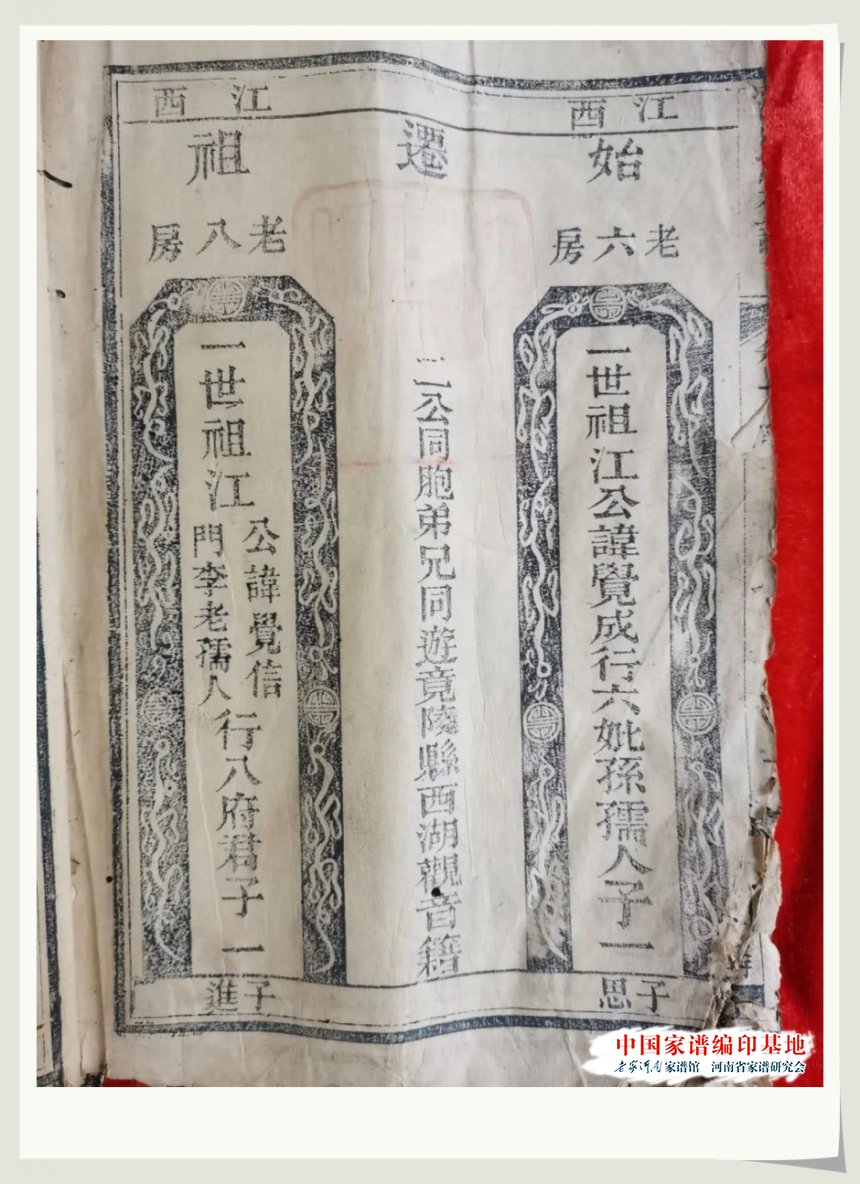 江西
江西
始遷祖
老六房
一世祖江公諱覺成行六妣孫孺人子一
子思
二公同胞弟兄同遊竟陵縣西湖觀音籍
老八房
一世祖江
公諱覺信
門李老孺人
行八府君子一
子進
中国家谱编印基地
家谱馆 河南省家谱研究会